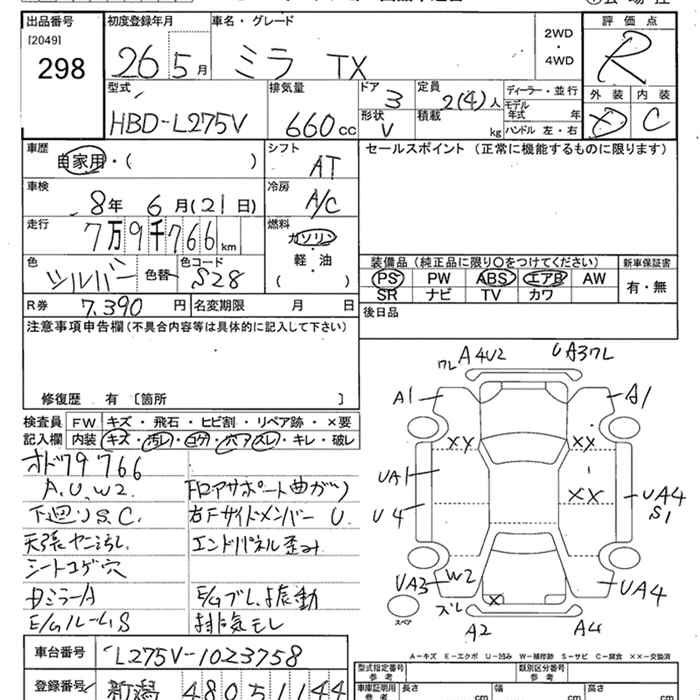 出品番号 初度登録年月 車名・グレード 評価点
[2049]
298 26 5月 ミラ TX 2WD・4WD R
型式 排気量 ドア 3 定員 2(4)人 ディーラー・並行 外装 内装
HBD-L275V 660cc 形状 V 積載 kg モデル年式 年 X C
ハンドル 左・右
車歴 シフト セールスポイント (正常に機能するものに限ります)
自家用・( ) AT
車検 冷房
8年 6月(21日) A/C
走行 燃料
7万9千766km ガソリン
色 色コード 軽・油 装備品 (純正品に限り○をつけてください) 新車保証書
シルバー 色替 S28 ( ) PS PW ABS エアB AW 有・無
SR ナビ TV カワ
R券 7,390円 名変期限 月 日 後日品
注意事項申告欄(不具合内容等は具体的に記入して下さい)
修復歴 有 〔箇所 〕
検査員 FW キズ・飛石・ヒビ割・リペア跡・×要
記入欄 内装 キズ・汚れ・コゲ・穴・スレ・キレ・破レ
オド79766
A.U.W2 FロアサポートI曲がり
下廻りS.C. 右Fサイドメンバー U
天張ヤニ汚れ エンドパネル歪み
シートコゲ穴
Dミラー A E/Gブレ、振動
E/GルームS 排気モレ
ワレ A4U2 UA3ワレ
A1 A1
XX XX
UA1 XX UA4
U4 S1
UA3 W2 UA4
ズレ X
スペア
A2 A4
A-キズ E-エクボ U-凹み W-補修跡 S-サビ C-腐食 ××-交換済
車台番号 L275V-1023758 型式指定番号 参考 類別区分番号 参考
登録番号 新潟 480 5 1144 車庫証明用 参考 長さ cm 幅 cm 高さ cm